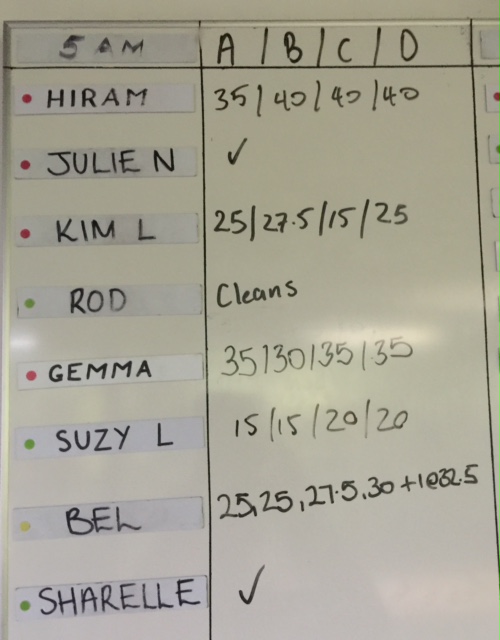 5 AM A / B / C / D
HIRAM 35 / 40 / 40 / 40
JULIE N ✓
KIM L 25/27.5/15/25
ROD Cleans
GEMMA 35/30/35/35
SUZY L 15/15/20/20
BEL 25,25,27.5,30+1@32.5
SHARELLE ✓